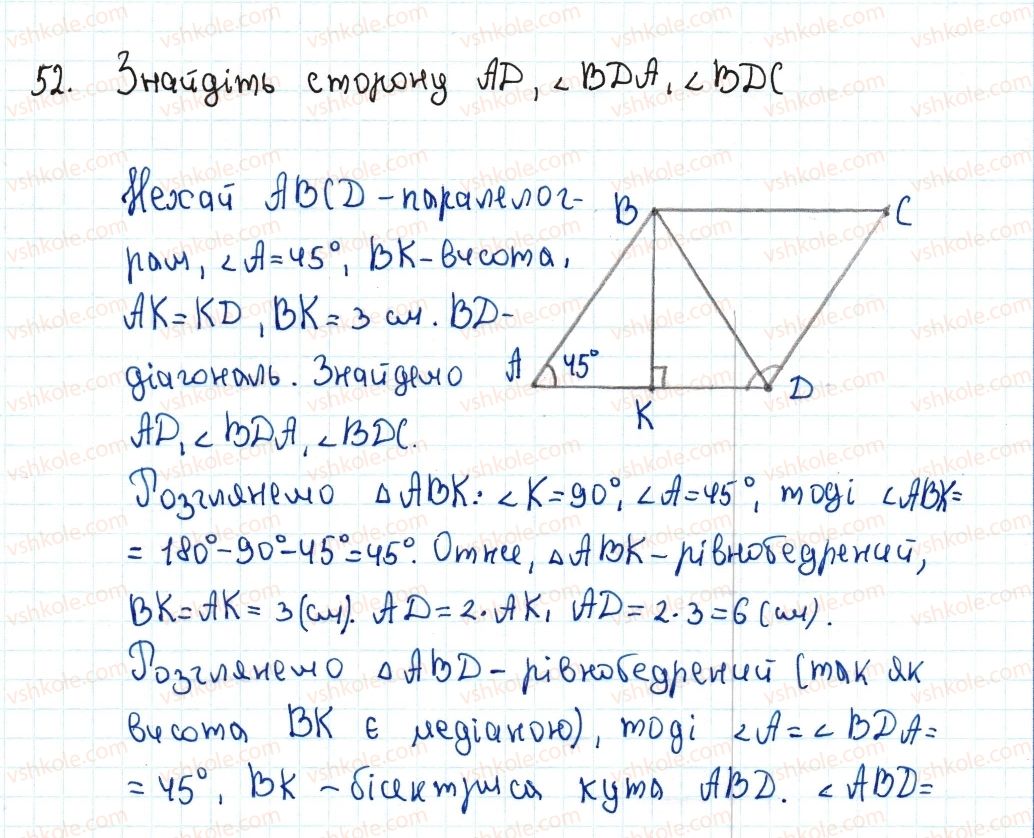 52. Знайдіть сторону AD, ∠BDA, ∠BDC
Нехай ABCD - паралелог-
рам, ∠A=45°, BK - висота,
AK=KD, BK=3 см. BD-
діагональ. Знайдемо
AD, ∠BDA, ∠BDC.
B
C
A
45°
K
D
Розглянемо △ABK: ∠K=90°, ∠A=45°, тоді ∠ABK=
=180°-90°-45°=45°. Отже, △ABK - рівнобедрений,
BK=AK=3 (см). AD=2·AK, AD=2·3=6 (см).
Розглянемо △ABD - рівнобедрений (так як
висота BK є медіаною), тоді ∠A=∠BDA=
=45°, BK - бісектриса кута ABD. ∠ABD=
vshkole.com